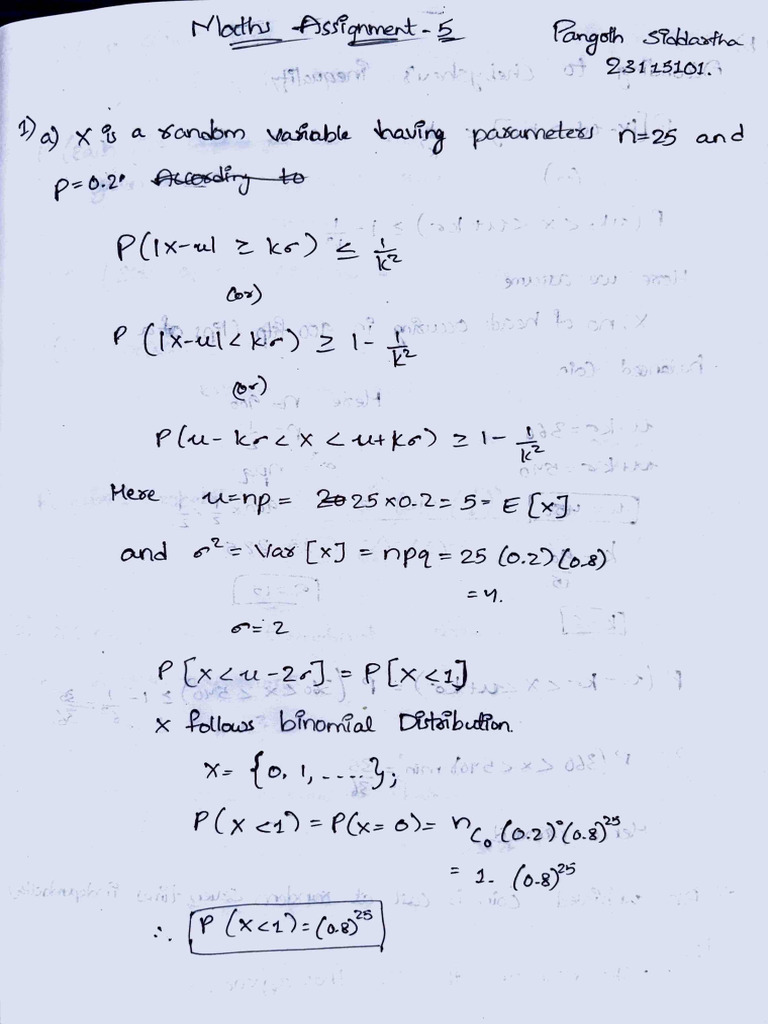 Maths Assignment - 5
Pangoth Siddartha
23115101.
1) a) X is a random variable having parameters n=25 and
P=0.2. According to
P(|X-μ| ≥ kσ) ≤ 1/k²
(or)
P(|X-μ| < kσ) ≥ 1 - 1/k²
(or)
P(μ - kσ < X < μ+kσ) ≥ 1 - 1/k²
Here μ=np = 20 25×0.2 = 5 = E[X]
and σ² = Var[X] = npq = 25 (0.2)(0.8)
= 4.
σ = 2
P[X < μ - 2σ] = P[X < 1]
X follows binomial Distribution.
X = {0, 1, .....};
P(X < 1) = P(X = 0) = nC₀ (0.2)⁰ (0.8)²⁵
= 1. (0.8)²⁵
∴ P(X < 1) = (0.8)²⁵